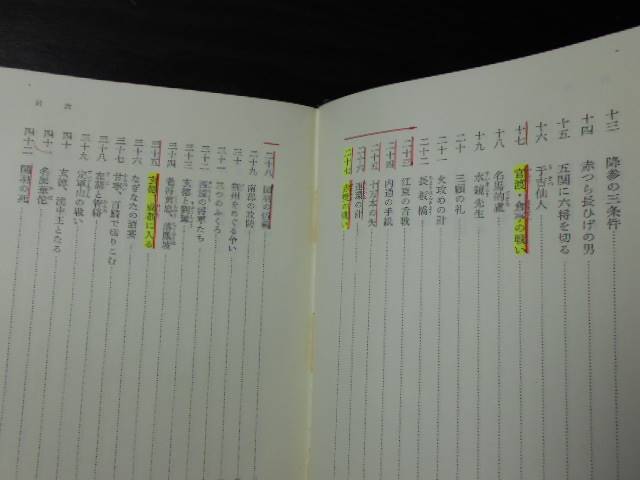 十三 降参の三条件
十四 赤つら長ひげの男
十五 五関に六将を切る
十六 于吉仙人
十七 官渡・倉亭の戦い
十八 名馬的盧
十九 水鏡先生
二十 三顧の礼
二十一 火攻めの計
二十二 長坂橋
二十三 江東の舌戦
二十四 内通の手紙
二十五 十万本の矢
二十六 連環の計
二十七 赤壁の戦い
目 次
二十八
二十九 南郡の攻防
三十 荊州をめぐる争い
三十一 三つのふくろ
三十二 西涼の将軍たち
三十三 玄徳と劉璋
三十四 落鳳坡
三十五 玄徳、成都に入る
三十六 なぎなたの酒宴
三十七 甘寧、百騎で切りこむ
三十八 左慈と管輅
三十九 定軍山の戦い
四十 玄徳、漢中王となる
四十一 名医華佗
四十二 関羽の死